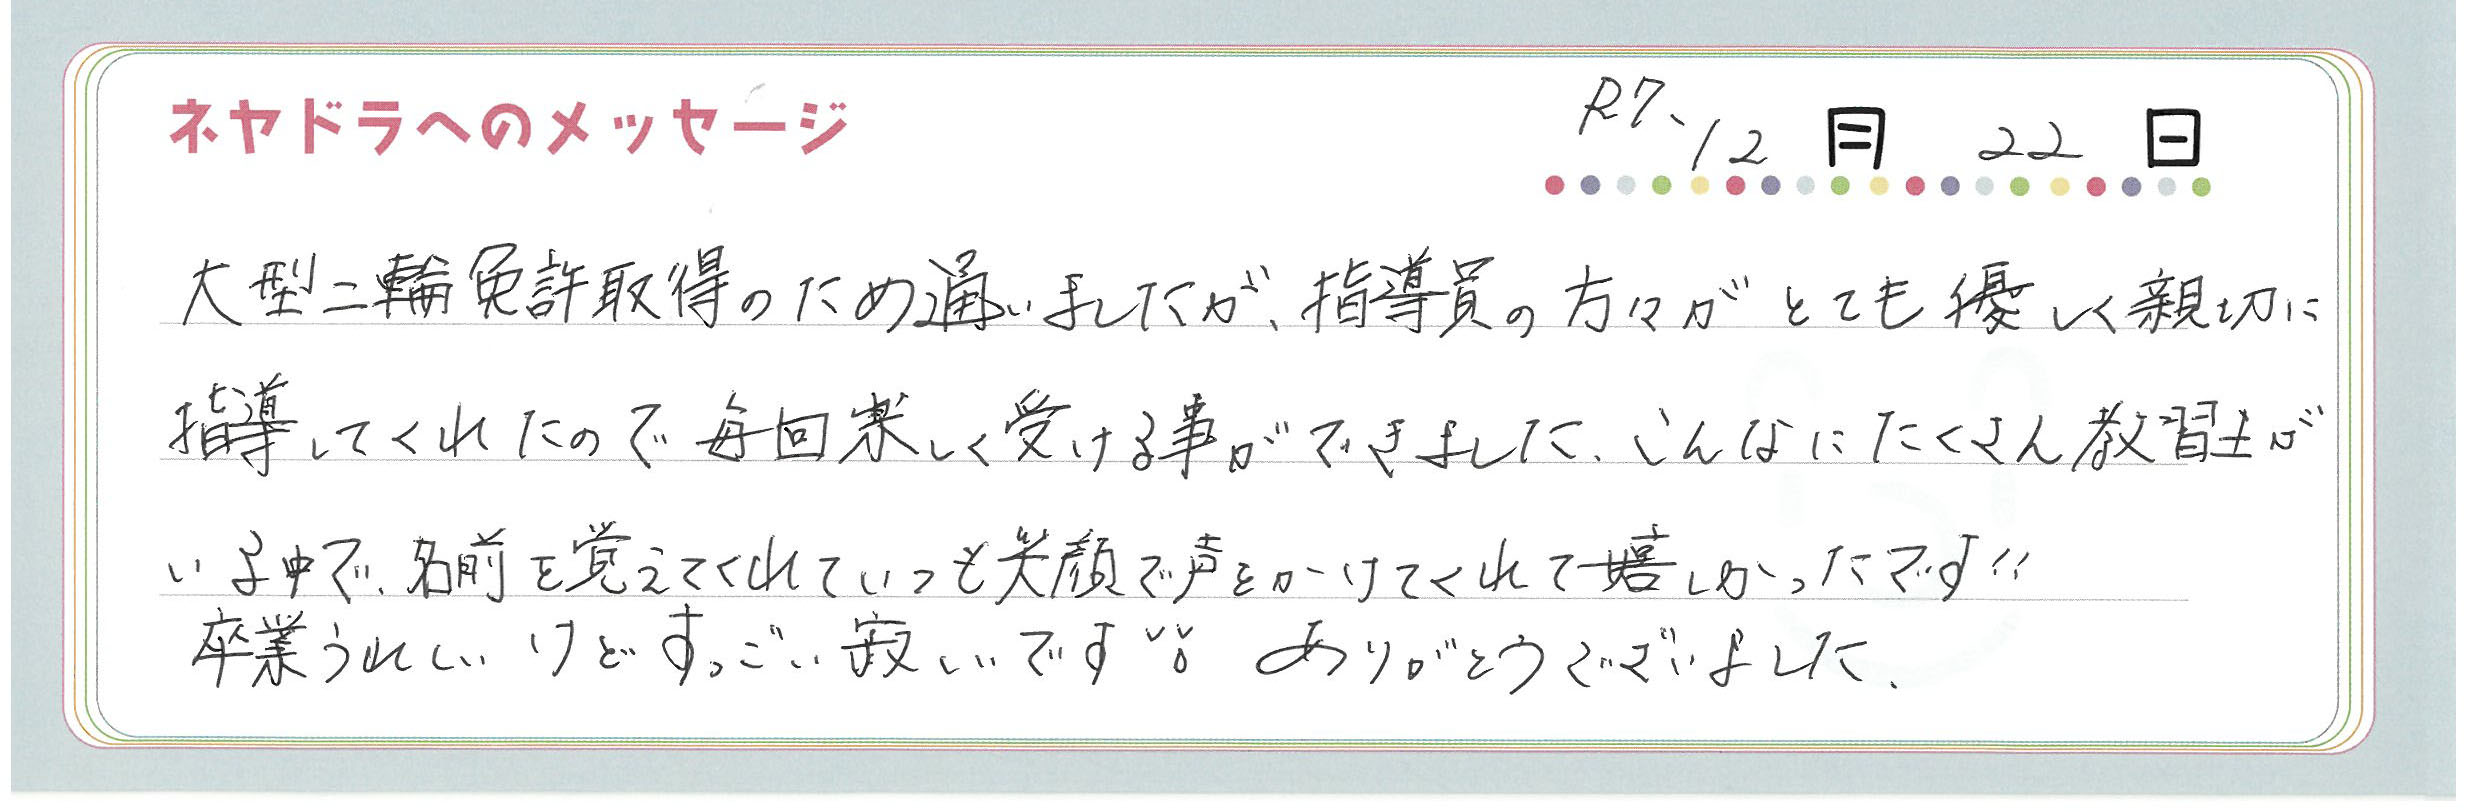 ネヤドラへのメッセージ
R7、12月 22日
大型二輪免許取得のため通いましたが、指導員の方々がとても優しく親切に
指導してくれたので毎回楽しく受ける事ができました、こんなにたくさん教習士が
いる中で、名前を覚えてくれていつも笑顔で声をかけてくれて嬉しかったです!!
卒業うれしいけどすっごい寂しいです!! ありがとうございました、